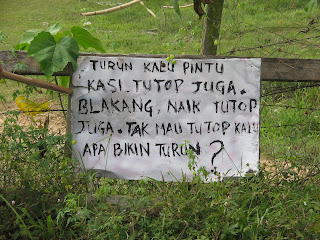 TURUN KALU PINTU
KASI TUTOP JUGA.
BLAKANG, NAIK TUTOP
JUGA. TAK MAU TUTOP KALU
APA BIKIN TURUN?